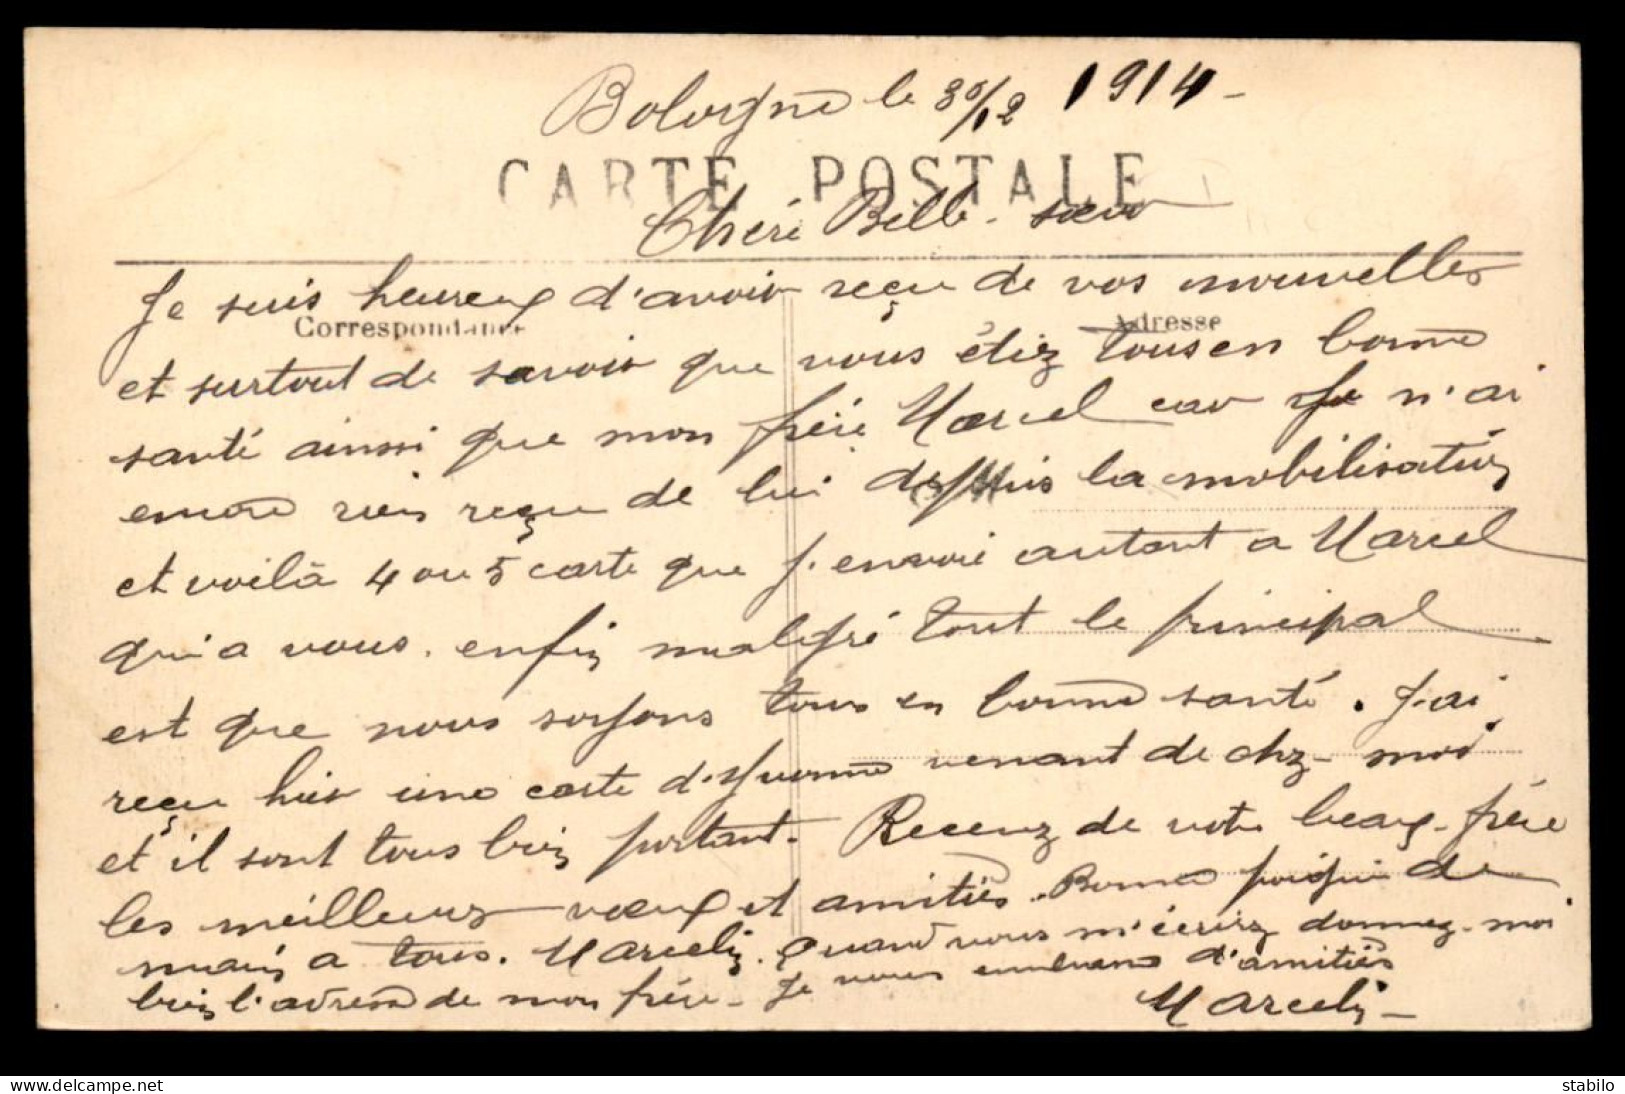 Bologne le 30/12 1914 -
CARTE POSTALE
Chère Belle-sœur
Je suis heureux d'avoir reçu de vos nouvelles
Correspondance Adresse
et surtout de savoir que vous étiez tous en bonne
santé ainsi que mon frère Marcel car je n'ai
encore rien reçu de lui depuis la mobilisation
et voilà 4 ou 5 carte que j'envoie autant a Marcel
qu'a vous. enfin malgré tout le principal
est que nous soyons tous en bonne santé. J'ai
reçu hier une carte d'Yvonne venant de chez-moi
et il sont tous bien portant. Recevez de votre beau-frère
les meilleurs vœux et amitiés. Bonne poignée de
main a tous. Marcelin. Quand vous m'écrirez donnez-moi
bien l'adresse de mon frère - Je vous embrasse d'amitiés
Marcelin -
stabilo